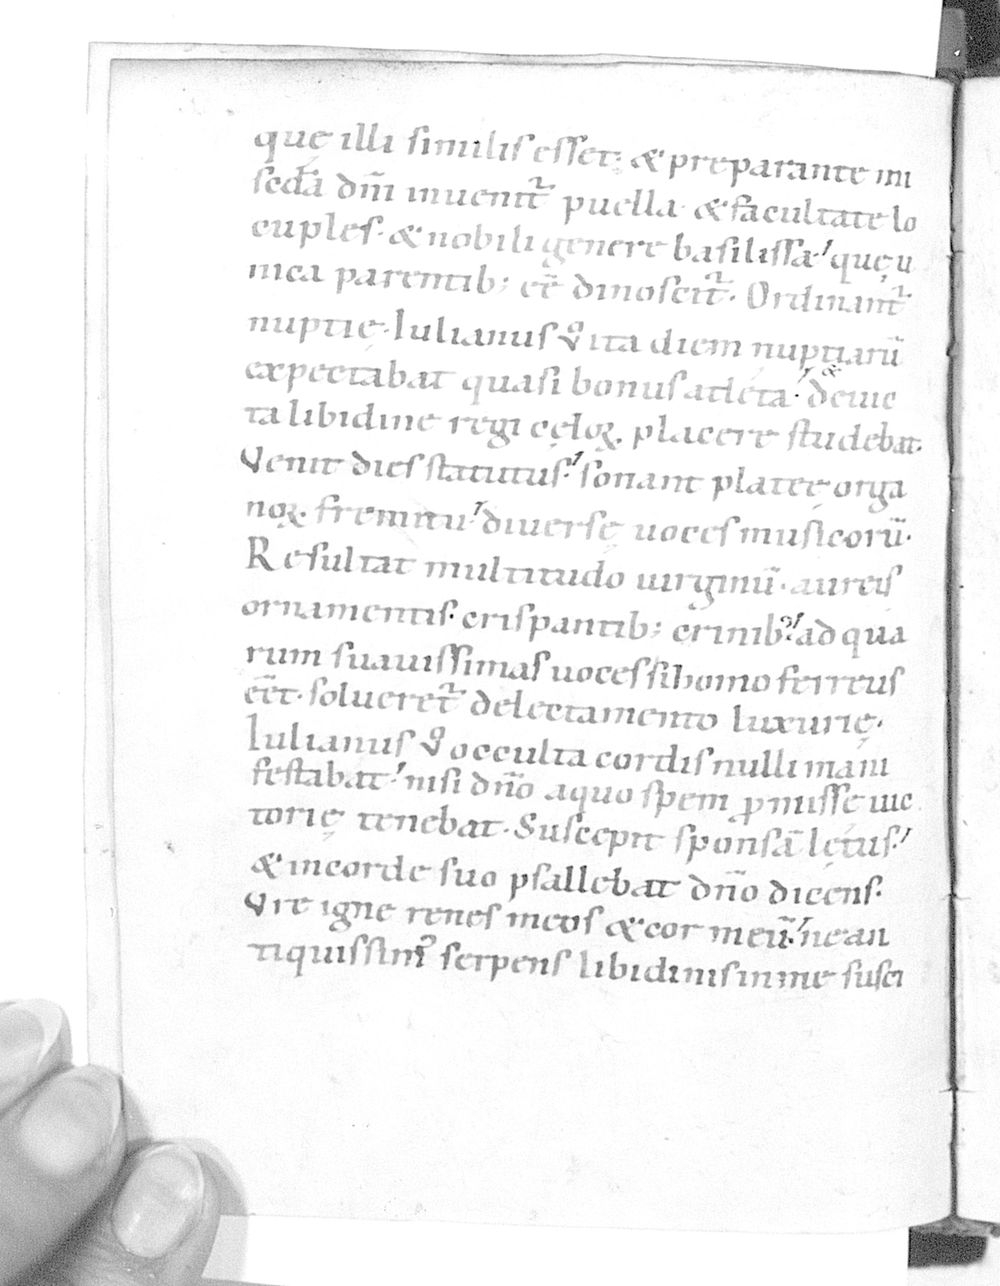 quę illi similis esset; & preparante mi
sedā dn̄i inuenit᷑ puella & facultate lo
cuples. & nobili genere basilissa. quę u
nica parentib; eē dinoscit᷑. Ordinant᷑
nuptię. Iulianus v̊ ita diem nuptiarū
expectabat quasi bonus atleta. & deuic
ta libidine regi cęloꝝ placere studebat.
Venit dies statutus. sonant plateę orga
noꝝ fremitu. diuersę uoces musicorū.
Resultat multitudo uirginū. aureis
ornamentis. crispantib; crinib; ad qua
rum suauissimas uoces si homo ferreus
eēt. solueret᷑ delectamento luxurię.
Iulianus v̊ occulta cordis nulli mani
festabat. nisi dn̄o a quo spem ꝓmissę uic
torię tenebat. Suscepit sponsā lętus.
& in corde suo psallebat dn̄o dicens.
Vre igne renes meos & cor meū. ne an
tiquissim᷒ serpens libidinis in me susci